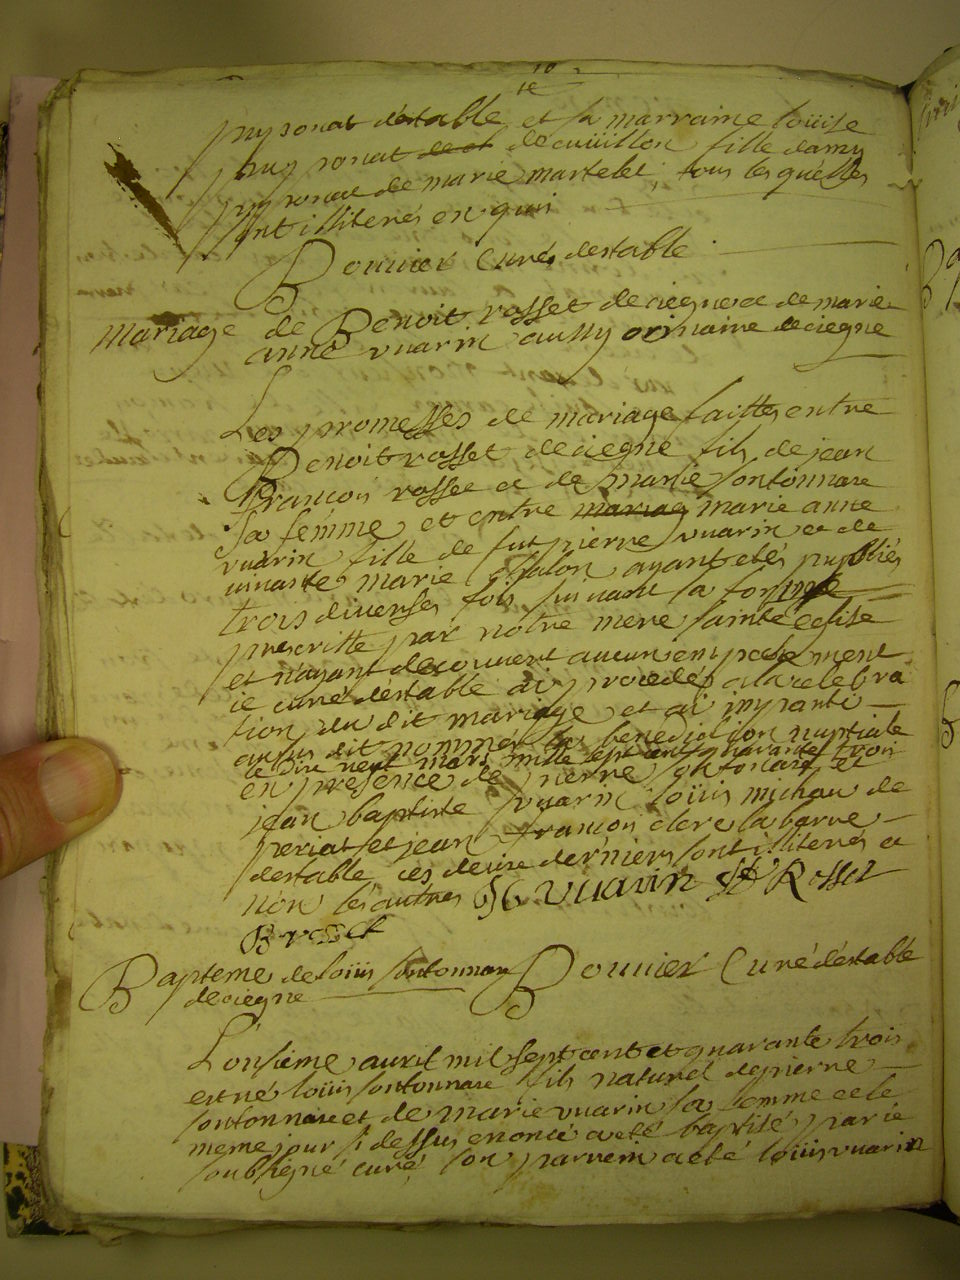 10
puysonat destable et sa marraine loüise
puysonat de cuüillon fille damy
puysonat de marie martelet, tous lesquelles
sont illiterés en quoi
Bouvier Curé destable
mariage de Benoit rosset deciegne et de marie
anne vuarin aussy orinaire deciegne
Les promesses de mariage faittes entre
Benoit rosset deciegne fils de jean
François rosset et de marie sontonnare
Sa femme et entre mariag marie anne
vuarin fille de fut pierre vuarin et de
vivante marie chalon ayant etés publiés
trois diverses fois suivant la forme
prescritte par notre mere sainte eglise
et n'ayant decouvert aucun empechement
ie curé destable ai procedé a la celebra
tion du dit mariage et ai imparti
aux sus dit nommés la benediction nuptiale
le dix neuf mars mille sept cent quarante trois
en presence de pierre sontonare et
jean baptiste vuarin loüis michau de
periat et jean françois clere la barre
destable ces deux derniers sont illiterés et
non les autres JB vuarin Rosset
B rosset
Bapteme de loüis sontonnare Bouvier Curé destable
deciegne
L'onsieme avril mil sept cent et quarante trois
est né loüis sontonnare fils naturel de pierre
sontonnare et de marie vuarin sa femme et le
meme jour si dessus enoncé a eté baptisé par ie
soubsigné curé, son parrein a eté loüis vuarin